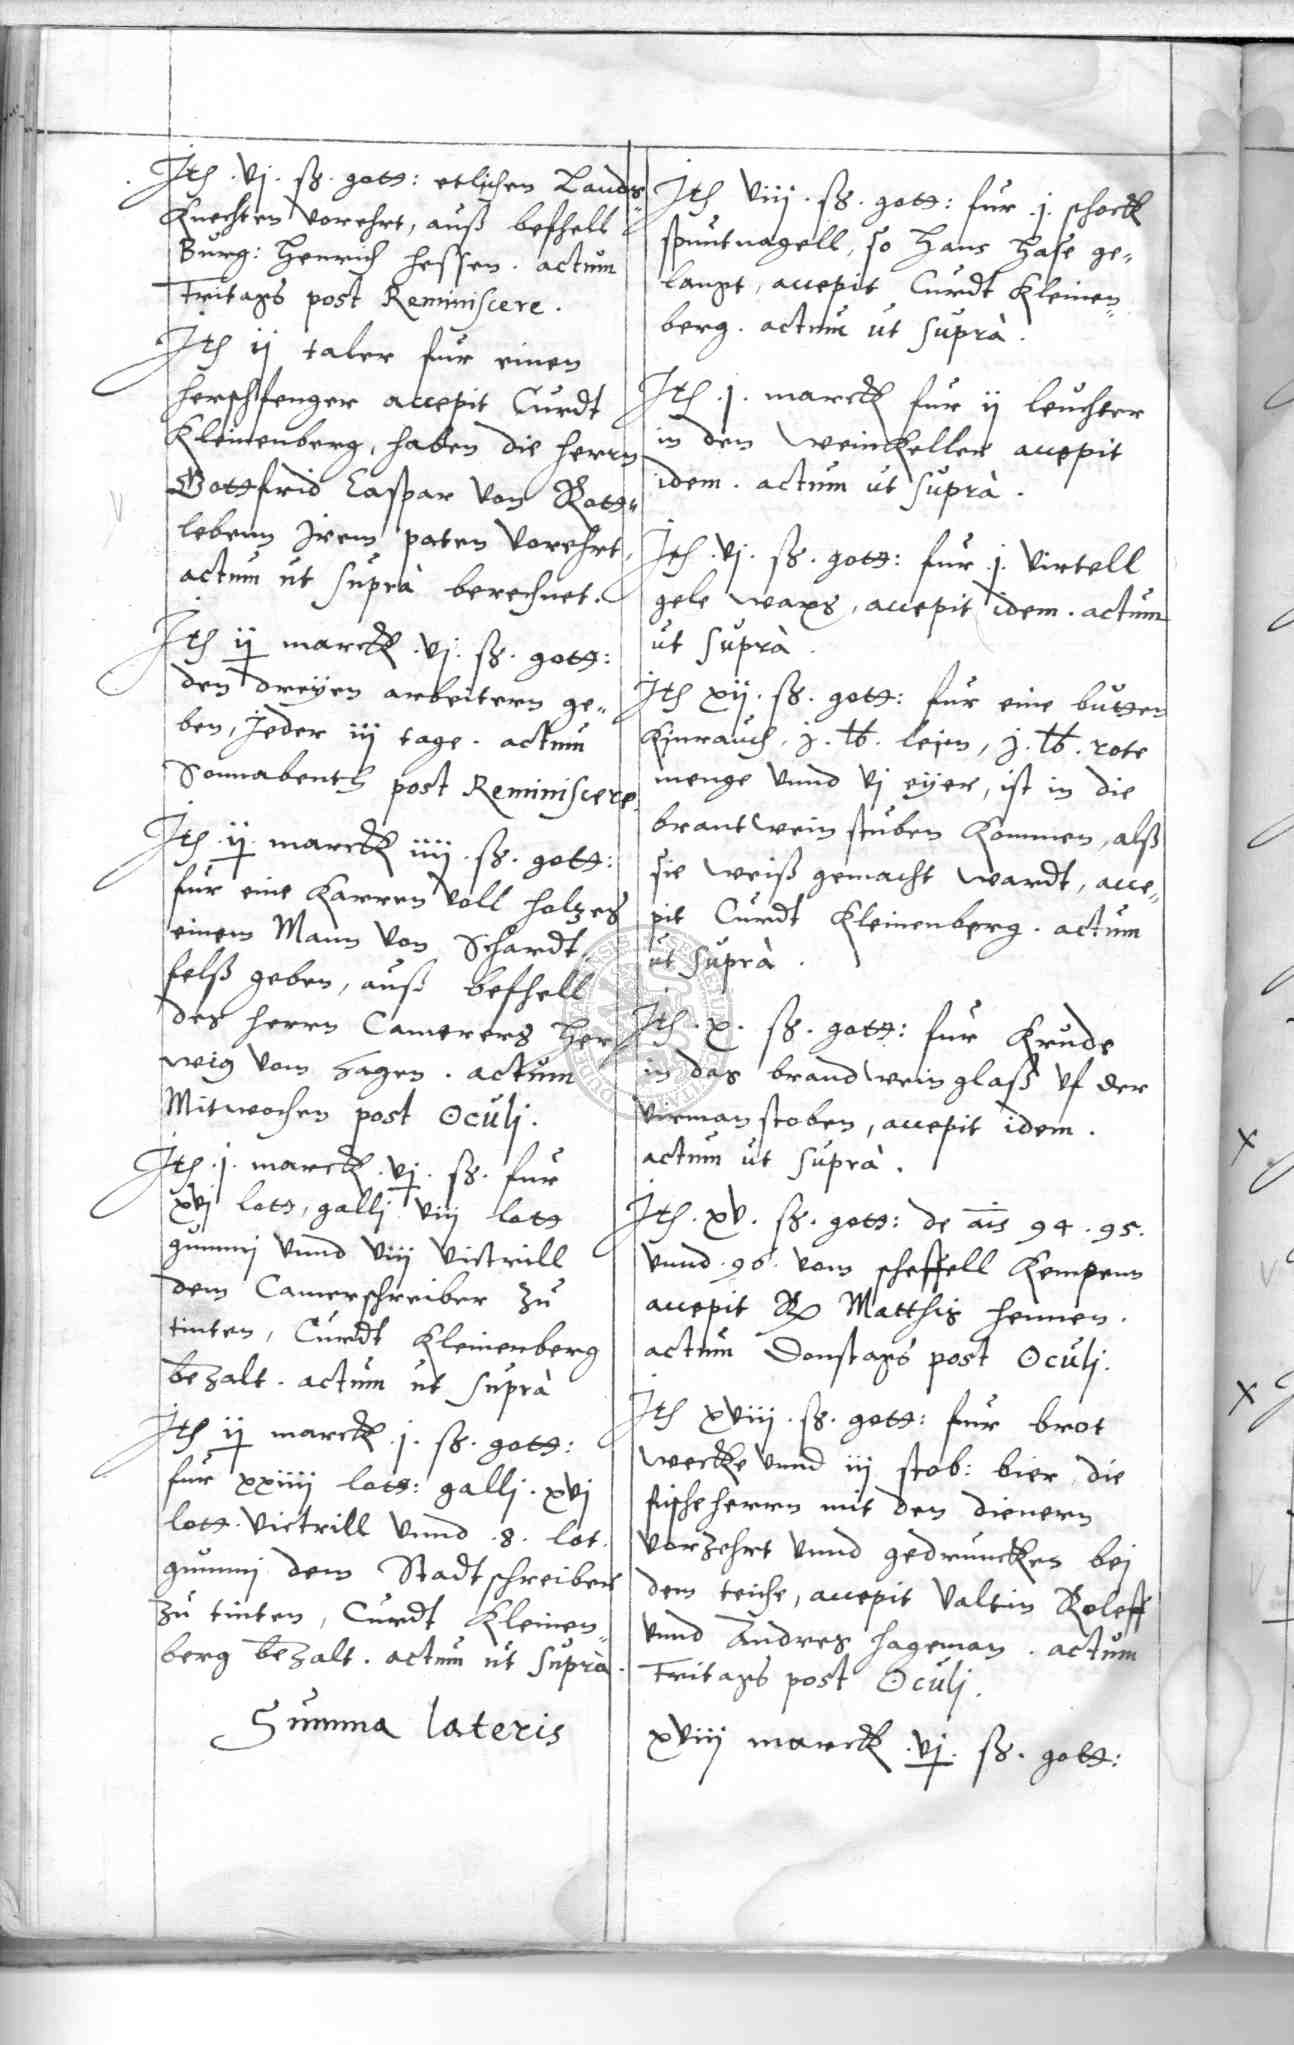 Itē .vj. ß. gott: etlichen Lands
Knechten vorehrt, auß befhell
Burg: Henrich Hessen. actum
Fritags post Reminiscere.
Itē ij taler fur einen
accepit Curdt
Kleinenberg, haben die herrn
Gottfrid Caspar von Rott-
lebenn Irem paten vorehrt,
actum ut suprà berechnet.
Itē ij marck .vj. ß. gott:
den dreyen arbeitern ge-
ben, Jeder iij tage. actum
Sonnabents post Reminiscere
Itē .ij. marck iiij. ß. gott:
fur eine Karren voll holtzes
einem Mann von Schardt-
felß geben, auß befhell
des herrn Camerers Her
wig vom Hagen. actum
Mitwochen post Oculj.
Itē .j. marck .vj. ß. fur
xvj lott, gallj viij lott
gummj vnnd viij victrill
dem Camerschreiber zu
tinten, Curdt Kleinenberg
bezalt. actum ut suprà
Itē ij marck .j. ß. gott:
fur xxiiij lott: gallj. xvj
lott. victrill vnnd .8. lot.
gummj dem Stadtschreiber
zu tinten, Curdt Kleinen-
berg bezalt. actum ut suprà.
Summa lateris
Itē viij. ß. gott: fur .j. schock
spuntnagell, so Hans Hase ge-
langt, accepit Curdt Kleinen-
berg. actum ut suprà.
Itē .j. marck fur ij leuchter
in den weinkeller accepit
idem. actum ut suprà.
Itē .vj. ß. gott: fur .j. virtell
gele waxs, accepit idem. actum
ut suprà.
Itē xij. ß. gott: fur eine butten
Kinrauch, j. ℔. leim, j. ℔. rote
menge vnnd vj eyer, ist in die
brantwein stuben kommen, alß
sie weiß gemacht wardt, acce-
pit Curdt Kleinenberg. actum
ut suprà.
Itē .x. ß. gott: fur Krude
in das brandwein glaß vf der
stoben, accepit idem.
actum ut suprà.
Itē .xv. ß. gott: de ais 94. 95.
vnnd. 96. vom scheffell Kempenn
accepit Matthis Hennen.
actum Donstags post Oculj.
Itē xviij. ß. gott: fur brot
wecke vnnd iij stob: bier, die
fischeherrn mit den dienern
vorzehrt vnnd gedruncken bej
dem teiche, accepit Valtin Roleff
vnnd Andres Hageman. actum
Fritags post Oculj.
xviij marck .vj. ß. gott: